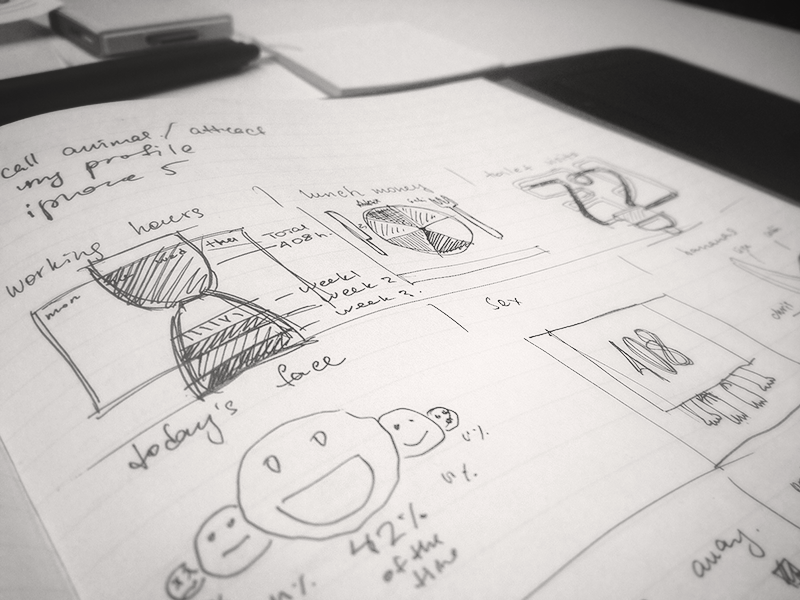 call animal / attract
my profile
iphone 5
working hours
mon
wed
thu
Total
408h.
week 1
week 2
week 3.
lunch money
toilet visits
72
sex
408
today's face
42%
of the
time
%
away.